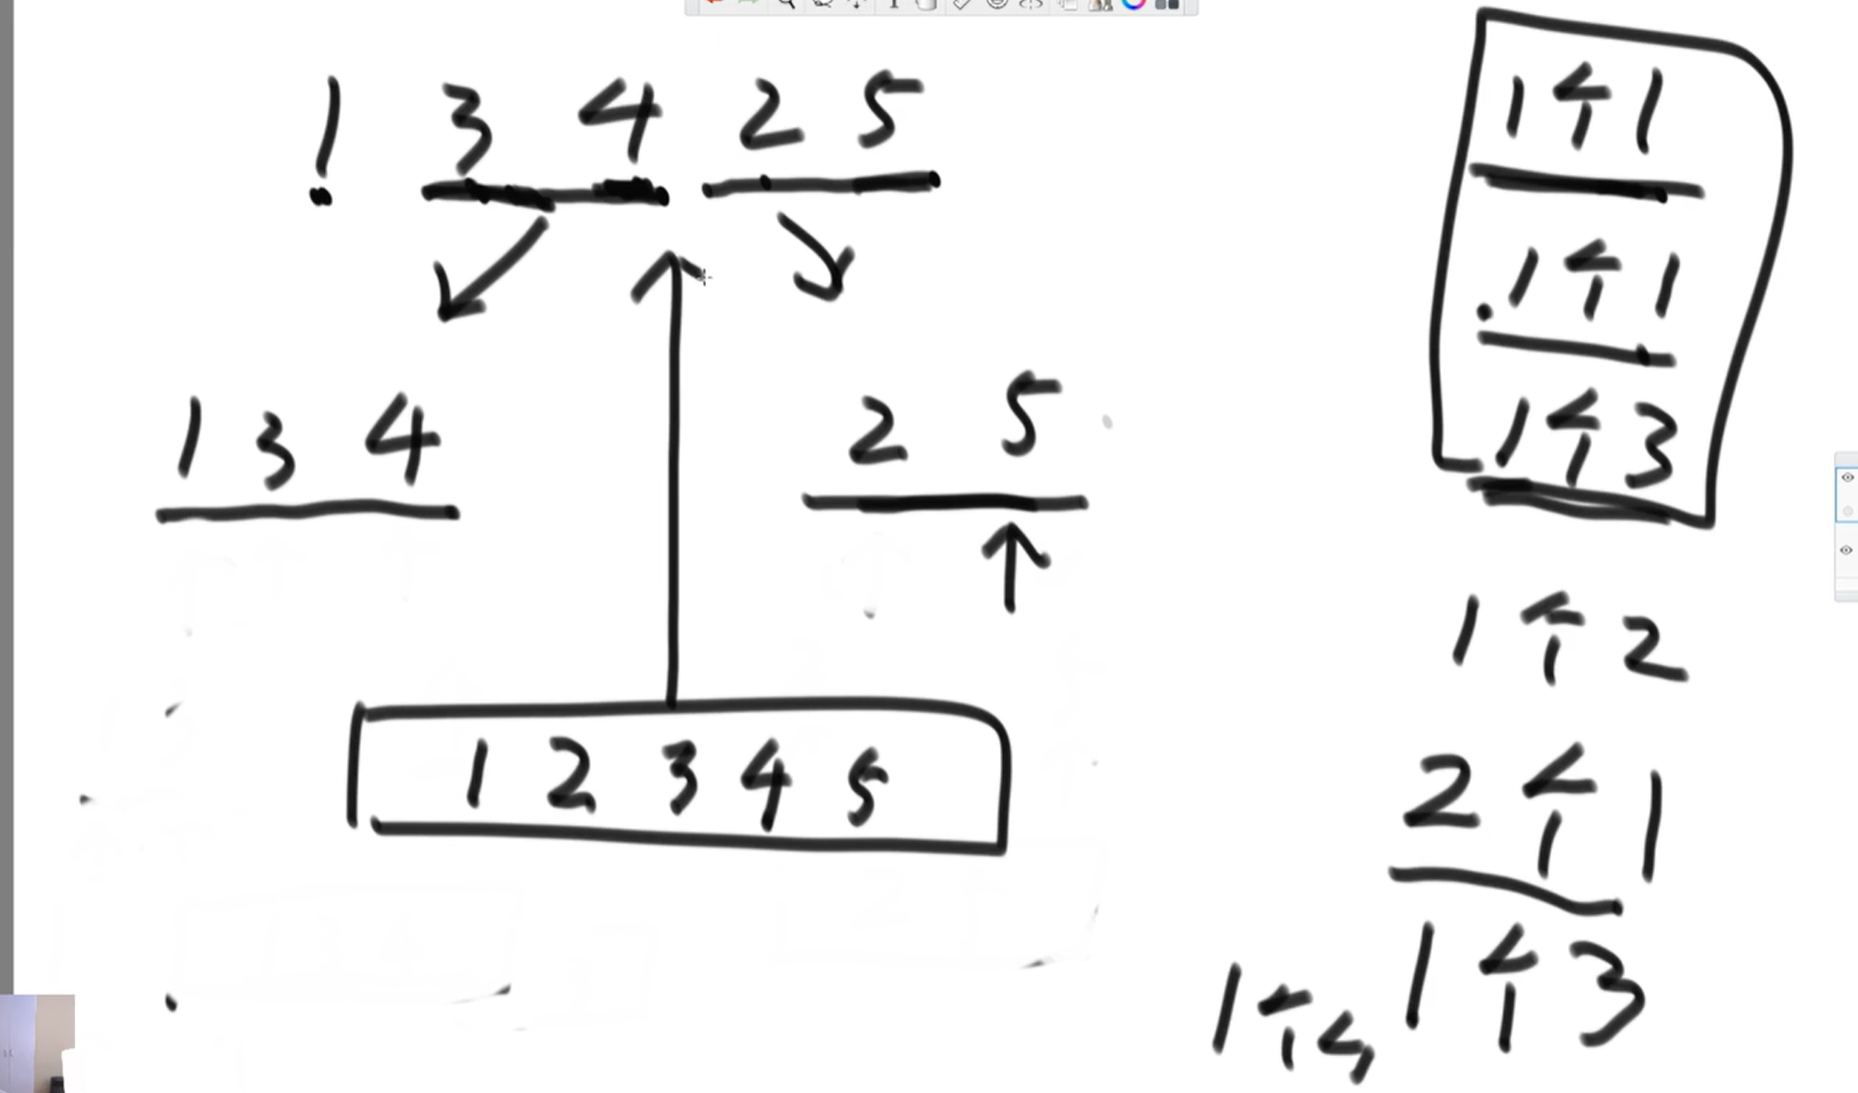 1 3 4 2 5
1 3 4
2 5
1 2 3 4 5
1个1
1个1
1个3
1个2
2个1
1个3
1个4